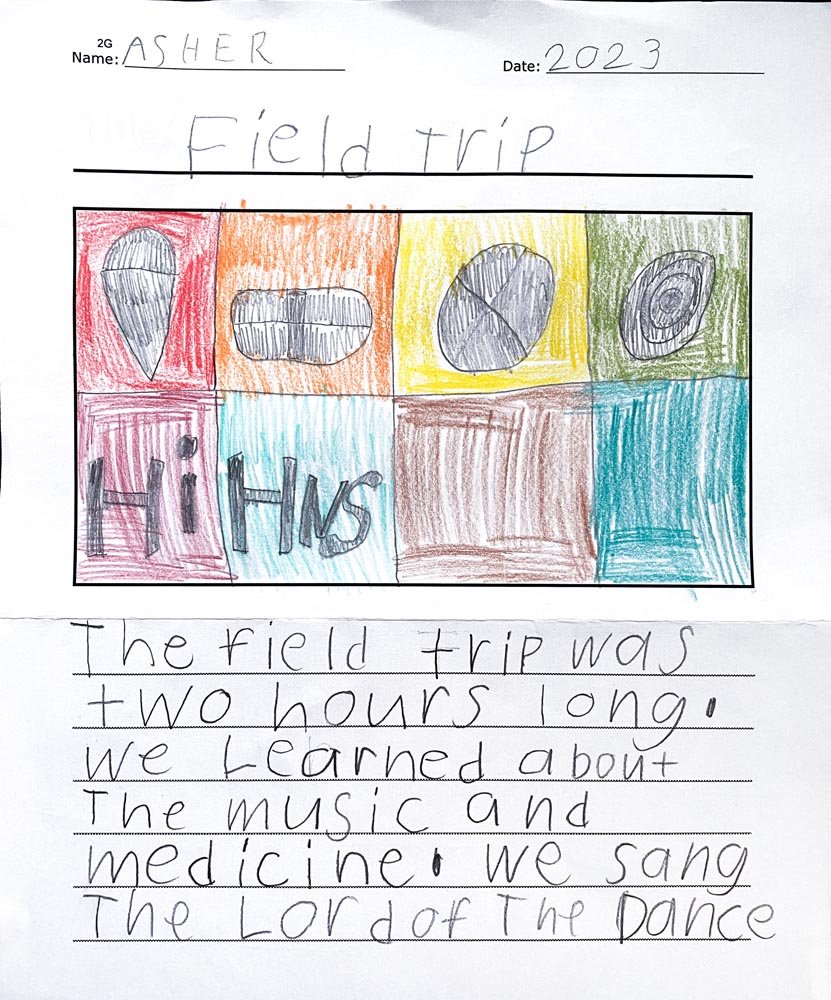 2G
Name: ASHER
Date: 2023
Field trip
Hi HNS
The field trip was
two hours long.
we Learned about
The music and
medicine. we sang
The Lord of The Dance